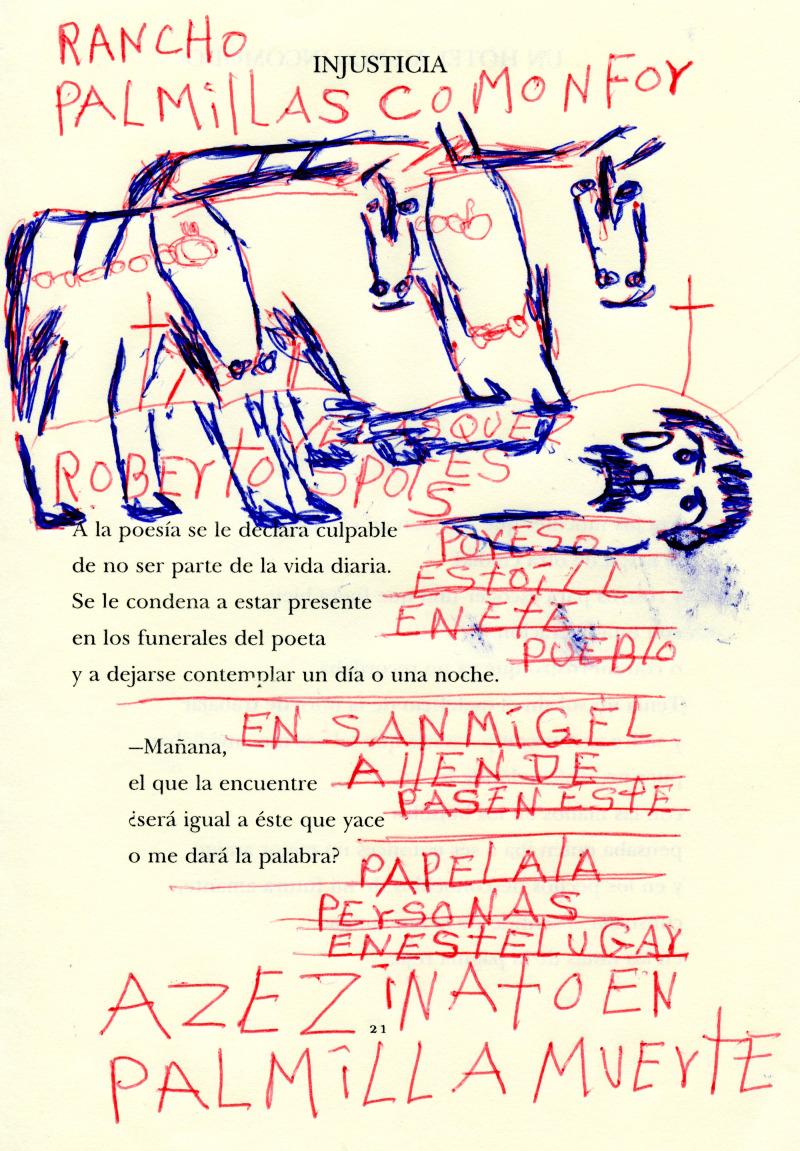 RANCHO
INJUSTICIA
PALMillAS COMONFOY
VELASQUEZ
ROBERtO
A la poesía se le declara culpable
de no ser parte de la vida diaria.
Se le condena a estar presente
en los funerales del poeta
y a dejarse contemplar un día o una noche.
POYESO
EStOiLL
EN EtE
PUEBlO
EN SANMiGEL
—Mañana,
AllENDE
el que la encuentre
PASEN EStE
¿será igual a éste que yace
o me dará la palabra?
PAPELAlA
PErSONAS
ENEStELUGAY
AZEZiNAtO EN
21
PALMiLLA MUErtE